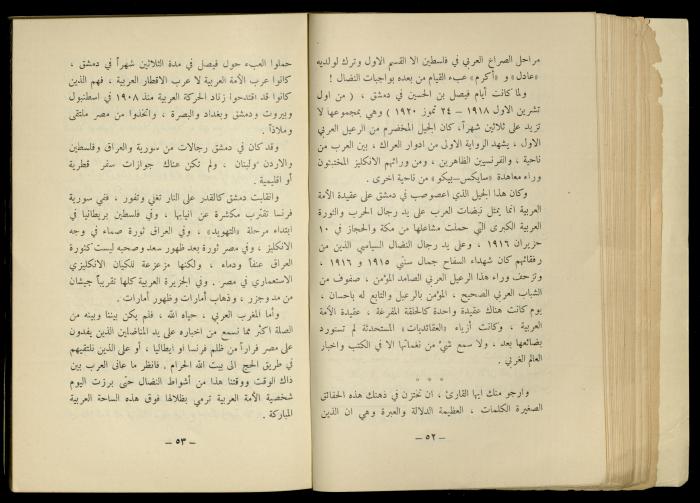 مراحل الصراع العربي في فلسطين الا القسم الاول وترك لولديه
«عادل» و «أكرم» عبء القيام من بعده بواجبات النضال !
ولما كانت أيام فيصل بن الحسين في دمشق ، ( من اول
تشرين الاول ١٩١٨ – ٢٤ تموز ١٩٢٠ ) وهي بمجموعها لا
تزيد على ثلاثين شهراً، كان الجيل المخضرم من الرعيل العربي
الاول ، يشهد الرواية الاولى من ادوار العراك ، بين العرب من
ناحية ، والفرنسيين الظاهرين ، ومن ورائهم الانكليز المختبئون
وراء معاهدة «سايكس-بيكو» من ناحية اخرى .
وكان هذا الجيل الذي اعصوصب في دمشق على عقيدة الأمة
العربية انما يمثل نبضات العرب على يد رجال الحرب والثورة
العربية الكبرى التي حملت مشاعلها من مكة والحجاز في ١٠
حزيران ١٩١٦ ، وعلى يد رجال النضال السياسي الذين من
رفقائهم كان شهداء السفاح جمال سنتي ١٩١٥ و ١٩١٦ ،
وتزحف وراء هذا الرعيل العربي الصامد المؤمن ، صفوف من
الشباب العربي الصحيح ، المؤمن بالرعيل والتابع له باحسان ،
يوم كانت هناك عقيدة واحدة كالحلقة المفرغة ، عقيدة الأمة
العربية ، وكانت أزياء «العقائديات» المستحدثة لم تستورد
بضائعها بعد ، ولا سمع شيء من نغماتها الا في الكتب واخبار
العالم الغربي .
* * *
وارجو منك ايها القارئ ، ان تختزن في ذهنك هذه الحقائق
الصغيرة الكلمات ، العظيمة الدلالة والعبرة وهي ان الذين
– ٥٢ –
حملوا العبء حول فيصل في مدة الثلاثين شهراً في دمشق ،
كانوا عرب الأمة العربية لا عرب الاقطار العربية ، فهم الذين
كانوا قد اقتدحوا زناد الحركة العربية منذ ١٩٠٨ في اسطنبول
وبيروت ودمشق وبغداد والبصرة ، واتخذوا من مصر ملتقى
وملاذاً .
وقد كان في دمشق رجالات من سورية والعراق وفلسطين
والاردن ولبنان ، ولم تكن هناك جوازات سفر قطرية
أو اقليمية .
وانقلبت دمشق كالقدر على النار تغلي وتفور ، ففي سورية
فرنسا تقترب مكشرة عن انيابها ، وفي فلسطين بريطانيا في
ابتداء مرحلة «التهويد» ، وفي العراق ثورة صماء في وجه
الانكليز ، وفي مصر ثورة بعد ظهور سعد وصحبه ليست كثورة
العراق عنفاً ودماء ، ولكنها مزعزعة للكيان الانكليزي
الاستعماري في مصر . وفي الجزيرة العربية كلها تقريباً جيشان
من مد وجزر ، وذهاب أمارات وظهور أمارات .
وأما المغرب العربي ، حياه الله ، فلم يكن بيننا وبينه من
الصلة اكثر مما نسمع من اخباره على يد المناضلين الذين يفدون
على مصر فراراً من ظلم فرنسا او ايطاليا ، أو على الذين نلتقيهم
في طريق الحج الى بيت الله الحرام . فانظر ما عانى العرب بين
ذاك الوقت ووقتنا هذا من أشواط النضال حتى برزت اليوم
شخصية الأمة العربية ترمي بظلالها فوق هذه الساحة العربية
المباركة .
– ٥٣ –